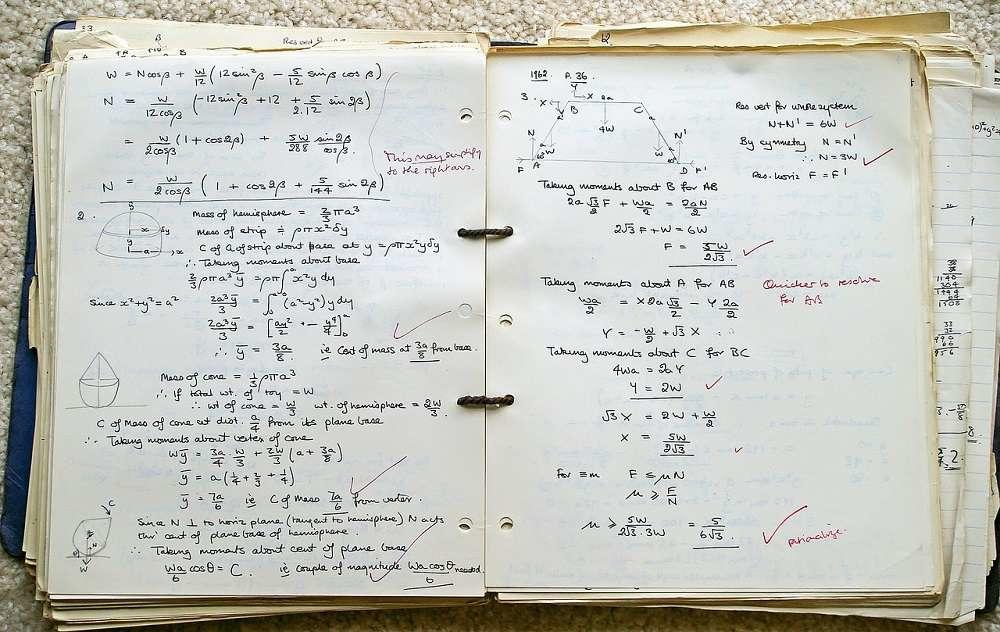 33
W = N cosβ + W/12 (12 sin²β - 5/12 sinβ cosβ)
N = W/12cosβ (-12 sin²β + 12 + 5/2.12 sin 2β)
= W/2cosβ (1 + cos2β) + 5W/288 sin2β/cosβ
This may simplify
to the right ans.
N = W/2cosβ (1 + cos 2β + 5/144 sin 2β)
2.
Mass of hemisphere = 2/3 πa³
Mass of strip ≑ ρπx²δy
C of G of strip about base at y = ρπx²yδy
∴ Taking moments about base
2/3 ρπa³ȳ = ρπ∫x²y dy
Since x²+y²=a²
2a³ȳ/3 = ∫(a²-y²)y dy
2a³ȳ/3 = [ay²/2 + - y⁴/4]
∴ ȳ = 3a/8 ie Cent of mass at 3a/8 from base.
Mass of cone = 1/3 ρπa³
∴ If total wt. of toy = W
∴ wt of cone = W/3 wt. of hemisphere = 2W/3.
C of Mass of cone at dist. a/4 from its plane base
∴ Taking moments about vertex of cone
Wȳ = 3a/4 W/3 + 2W/3 (a + 3a/8)
ȳ = a(1/4 + 2/3 + 1/4)
ȳ = 7a/6 ie C of Mass 7a/6 from vertex.
Since N ⊥ to horiz plane (tangent to hemisphere) N acts
thro' cent of plane base of hemisphere.
∴ Taking moments about cent of plane base
Wa/6 cosθ = C. ie couple of magnitude Wa cosθ/6 needed.
1962 P. 36.
3.
Res vert for whole system
N+N' = 6W
By symmetry N = N'
∴ N = 3W
Res. horiz F = F'
Taking moments about B for AB
2a √3/2 F + Wa/2 = 2aN/2
2√3F + W = 6W
F = 5W/2√3.
Taking moments about A for AB
Quicker to resolve
for AB
Wa/2 = X 2a √3/2 - Y 2a/2
Y = -W/2 + √3 X
Taking moments about C for BC
4Wa = 2aY
Y = 2W
√3 X = 2W + W/2
X = 5W/2√3
For ≡m F ≤ μN
μ ≥ F/N
μ ≥ 5W/2√3.3W = 5/6√3.
rationalise